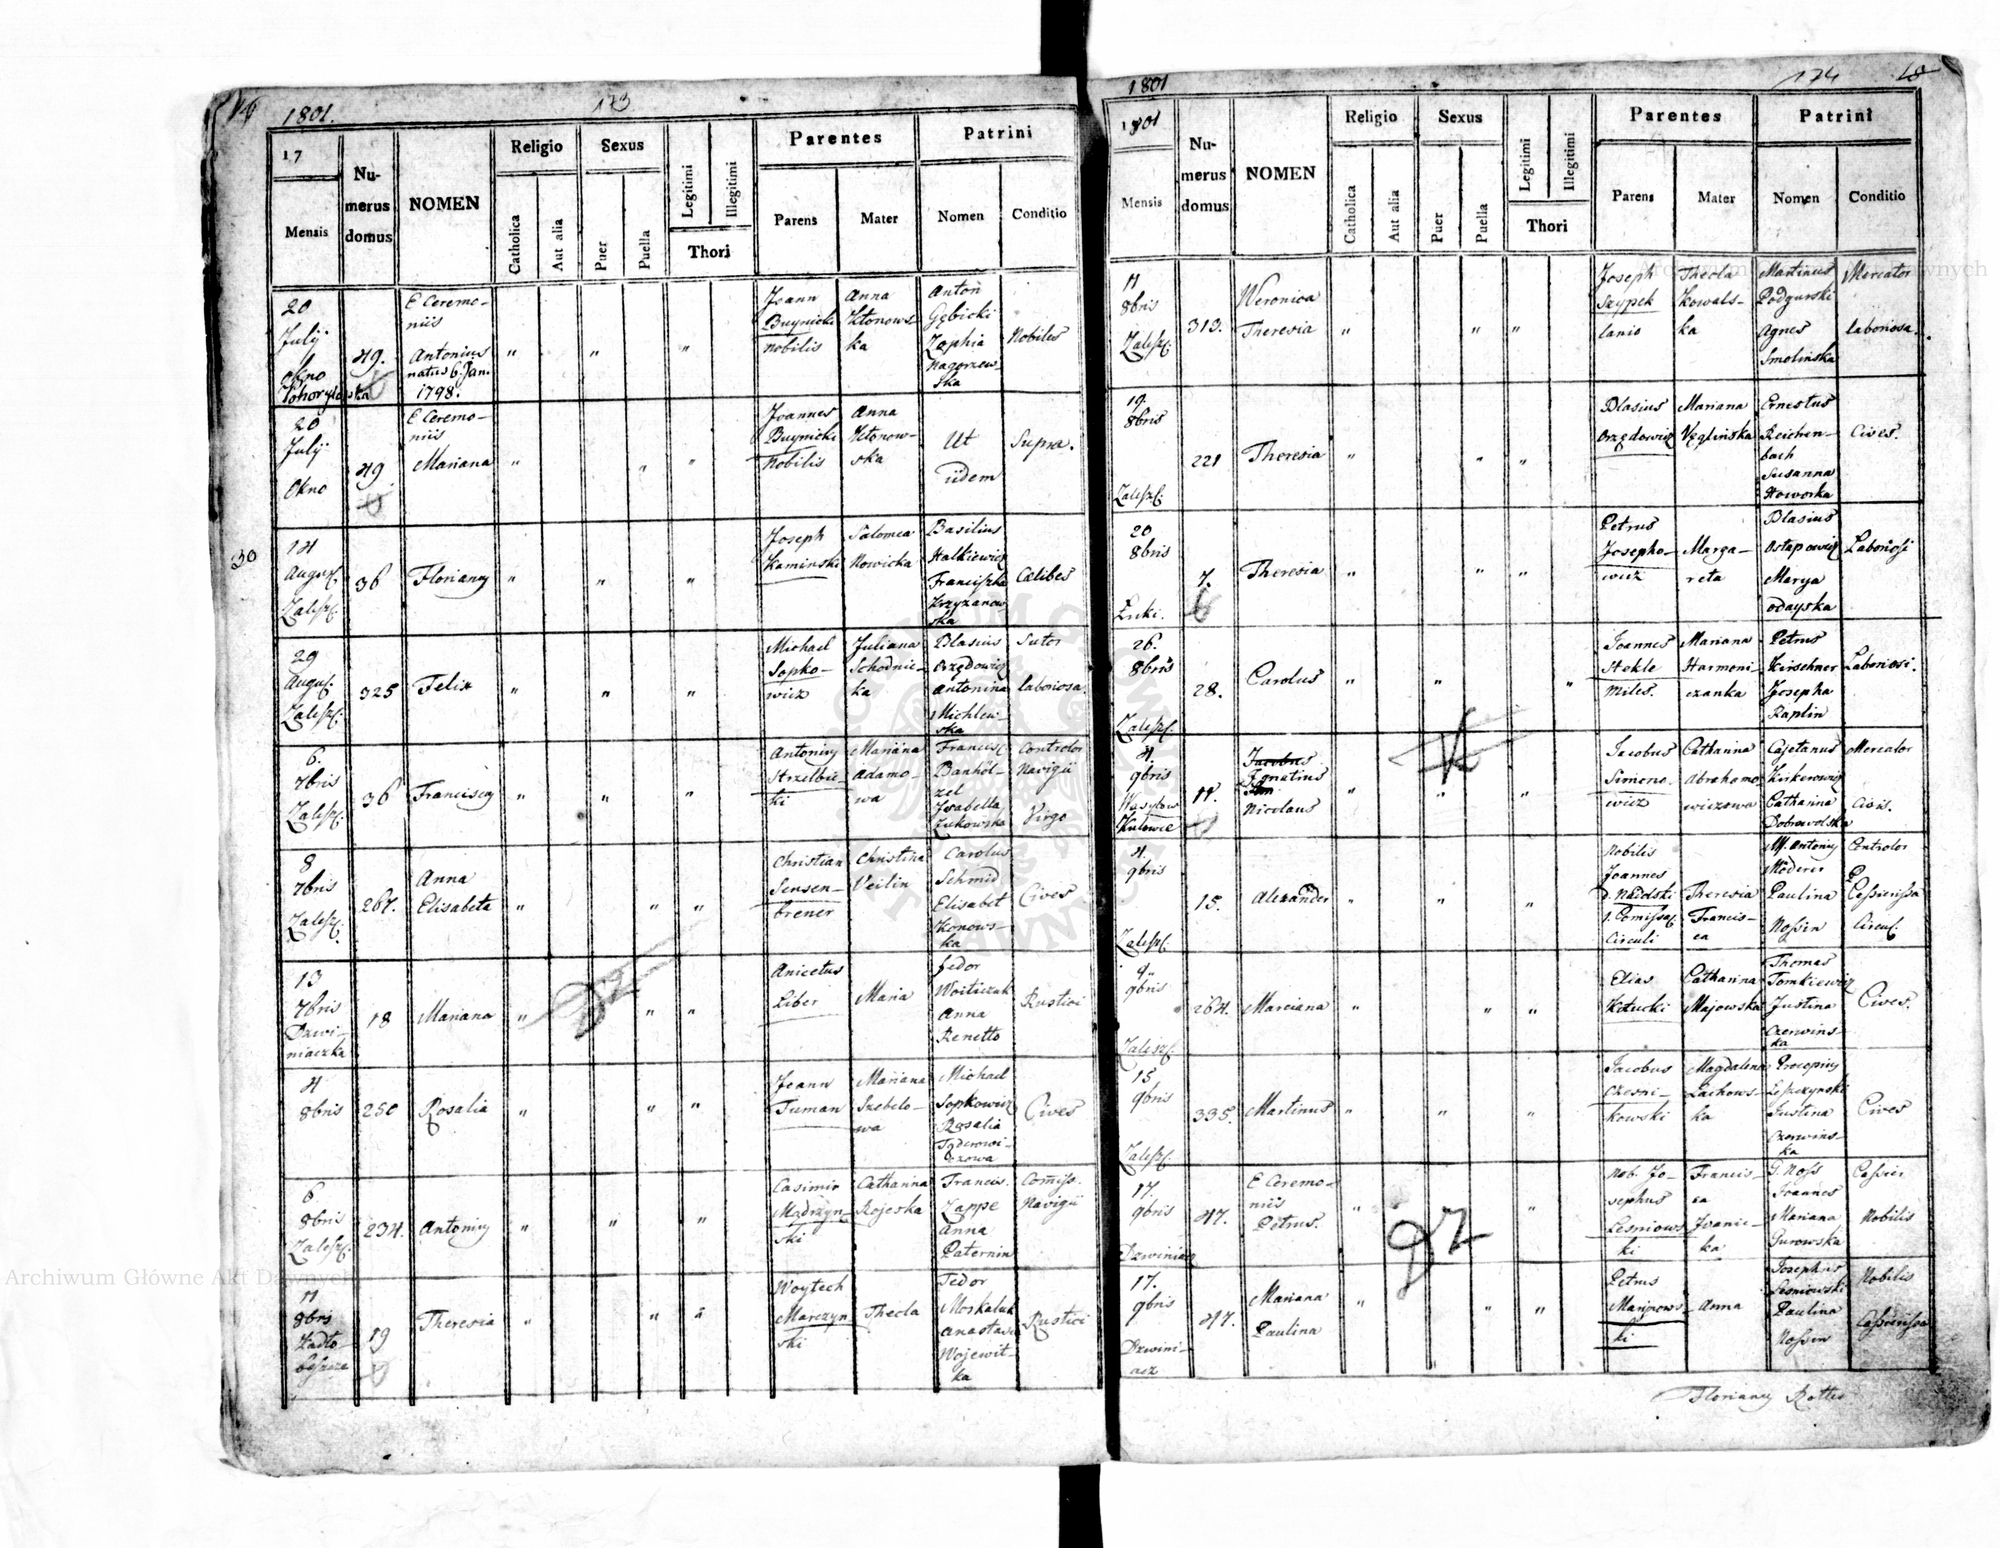 1801.
173
17
Mensis
Numerus domus
NOMEN
Religio
Catholica
Aut alia
Sexus
Puer
Puella
Legitimi
Illegitimi
Thori
Parentes
Parens
Mater
Patrini
Nomen
Conditio
20 July Okno
49.
E Ceremoniis Antonius natus 6. Jan. 1798.
" " "
Joann Buynicki nobilis
Anna
Anton Gębicki Zophia Nagorzewska
Nobiles
20 July Okno
49
E Ceremoniis Mariana
" " "
Joannes Buynicki Nobilis
Anna
Ut iidem
Supra.
30
14 August. Zalesz.
36
Floriany
" " "
Joseph Kaminski
Salomea Nowicka
Basilius Halkiewicz Franciszka Krzyzanowska
Cælibes
29 August. Zalesz.
325
Felix
" " "
Michael Sopkowicz
Juliana Schodnicka
Blasius Orzędowicz Antonina Michlewska
Sutor laboriosa.
6. 7bris Zalesz.
36
Franciscy
" " "
Antoniy Strzelbicki
Mariana Adamowa
Francisc. Banhölzel Isabella Zukowska
Controlor Navigii Virgo
8 7bris Zalesz.
267.
Anna Elisabeta
" " "
Christian Sensenbrener
Christina Veilin
Carolus Schmid Elisabet Konowska
Cives
13 7bris Dzwiniaczka
18
Mariana
" " "
Anicetus Liber
Maria
Fedor Woiticzuk Anna Renetto
Rustici
4 8bris
250
Rosalia
" " "
Joann Tuman
Mariana Szebelowa
Michael Sopkowicz Rosalia Toderowiczowa
Cives
6 8bris Zalesz.
234.
Antoniy
" " "
Casimir Mądrzynski
Catharina Rojeska
Francis. Zappe Anna Paternin
Comiss. Navigii
11 8bris
19
Theresia
" " "
Woytech Marczynski
Thecla
Fedor Moskaluk Anastasia Wojewitka
Rustici
1801
174
18
1801
Mensis
Numerus domus
NOMEN
Religio
Catholica
Aut alia
Sexus
Puer
Puella
Legitimi
Illegitimi
Thori
Parentes
Parens
Mater
Patrini
Nomen
Conditio
11 8bris Zalesz.
313.
Weronica Theresia
" " "
Joseph Szypek lanio
Thecla Kowalska
Martinus Podgurski Agnes Smolinska
Mercator laboriosa.
19. 8bris Zalesz.
221
Theresia
" " "
Blasius Orzędowicz
Mariana Węglinska
Ernestus Reichenbach Susanna Howorka
Cives.
20 8bris Łuki.
7.
Theresia
" " "
Petrus Josephowicz
Margareta
Blasius Ostapowicz Marya Odayska
Laboriosi
26. 8bris Zalesz.
28.
Carolus
" " "
Joannes Stekle miles.
Mariana Harmoniczanka
Petrus Kirschner Josepha Raplin
Laboriosi.
4. 9bris
11.
Jacobus Ignatius Nicolaus
" " "
Jacobus Simonowicz
Catharina Abrahamowiczowa
Cajetanus Kirkorowicz Catharina Dobrowolska
Mercator Civis.
4. 9bris Zalesz.
15.
Alexander
" " "
Nobilis Joannes Circuli
Theresia Francisca
Antoniy Möderer Paulina Nossin
Controlor Cassierissa Circul.
9. 9bris Zalesz.
264.
Marciana
" " "
Elias
Catharina Majowska
Thomas Tomkiewicz Justina Czerwinska
Cives.
15 9bris Zalesz.
335.
Martinus
" " "
Jacobus Czesnikowski
Magdalena Lachowska
Procopius Leszczynski Justina Czerwinska
Cives
17. 9bris Dzwiniacz
47.
E Ceremoniis Petrus.
" "
92
Nob. Josephus Lesniowski
Francisca Ivanicka
G. Noss Joannes Mariana Gurowska
Cassier Nobilis
17. 9bris Dzwiniacz
47.
Mariana Paulina
" " "
Petrus
Anna
Josephus Lesniowski Paulina Nossin
Nobilis Cassierissa
Floriany Rottes
Archiwum Główne Akt Dawnych